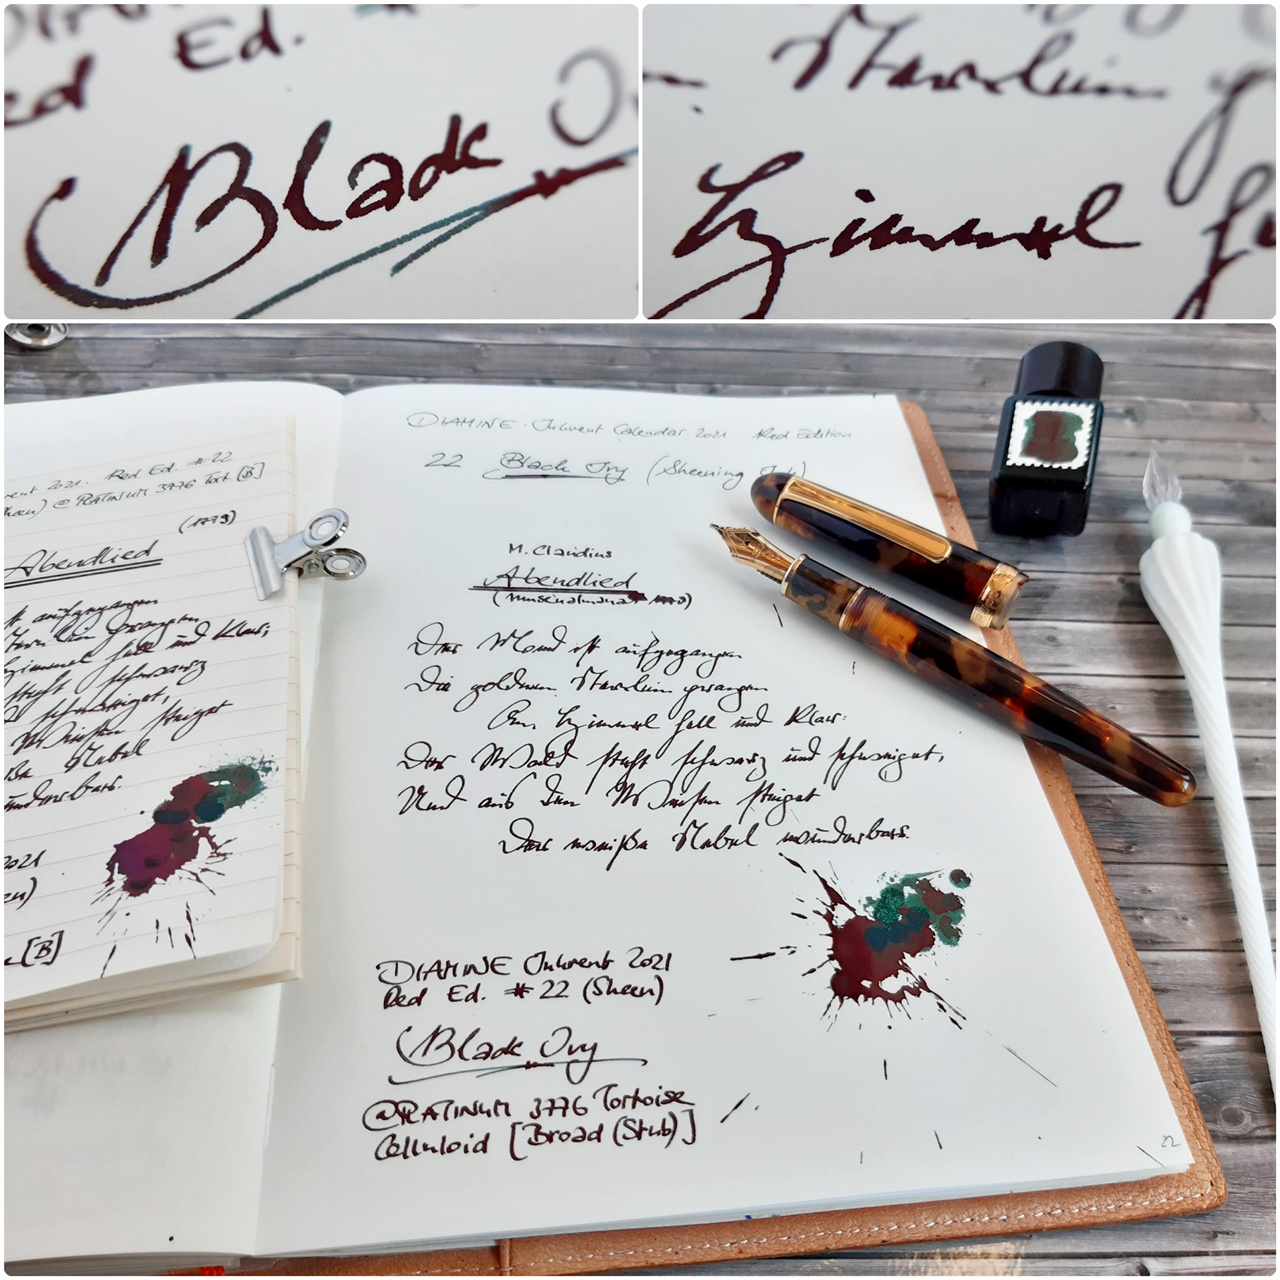 Ed.
ed
Black
Sternlein
Himmel
DIAMINE · Inkvent Calendar 2021 · Red Edition
22 Black Ivy (Sheening Ink)
M. Claudius
Abendlied
(Musenalmanach 1779)
Der Mond ist aufgegangen
Die goldnen Sternlein prangen
Am Himmel hell und klar:
Der Wald steht schwarz und schweiget,
Und aus den Wiesen steiget
Der weiße Nebel wunderbar.
DIAMINE Inkvent 2021
Red Ed. #22 (Sheen)
Black Ivy
@PLATINUM 3776 Tortoise
Celluloid [Broad (Stub)]
22
2021. Red Ed. #22
@ PLATINUM 3776 Tort. [B]
(1779)
Abendlied
aufgegangen
Sternlein prangen
Himmel hell und klar;
steht schwarz
schweiget,
Wiesen steiget
Nebel
wunderbar.
2021
[B]